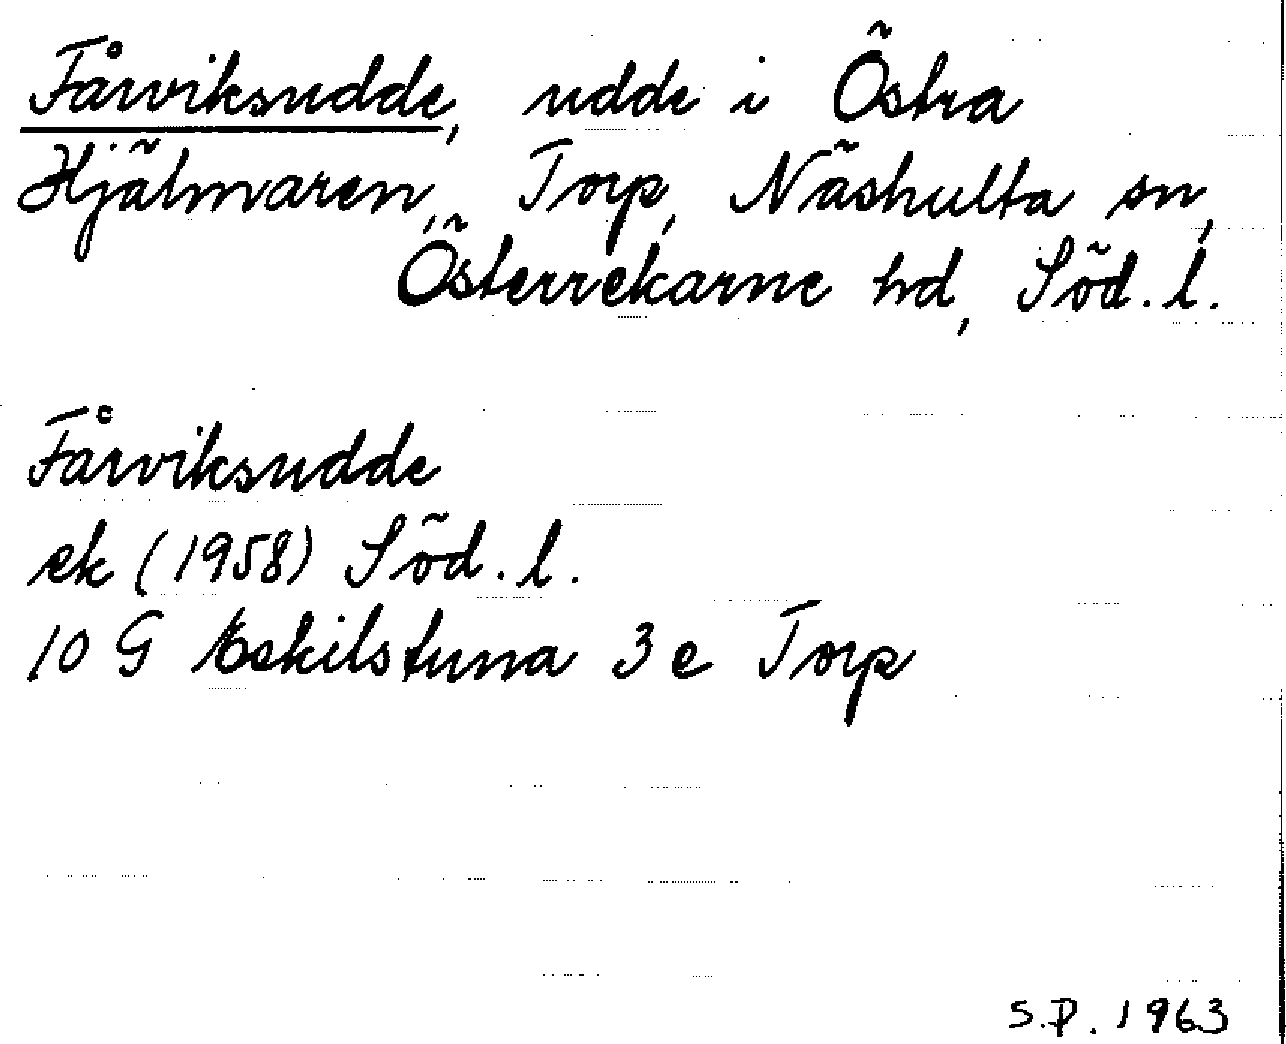 Fårviksudde, udde i Östra
Hjälmaren, Torp, Näshulta sn,
Österrekarne hd, Söd. l.
Fårviksudde
ek (1958) Söd. l.
10 G Eskilstuna 3 e Torp
S.P. 1963